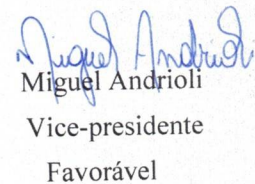 Miguel Andrioli
Miguel Andrioli
Vice-presidente
Favorável